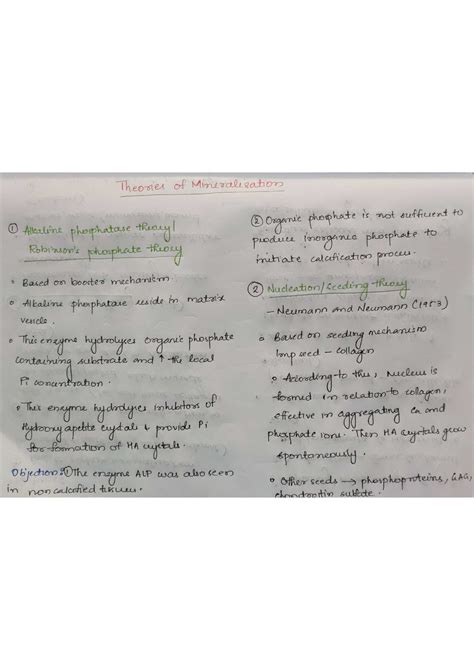 Theories of Mineralization
① Alkaline phosphatase theory/
Robinson's phosphate theory
Based on booster mechanism.
Alkaline phosphatase reside in matrix
vesicle.
This enzyme hydrolyses organic phosphate
containing substrate and ↑ the local
Pi concentration.
This enzyme hydrolyses inhibitors of
Hydroxyapetite crystals & provide Pi
for formation of HA crystals.
Objection: ① The enzyme ALP was also seen
in noncalcified tissues.
② Organic phosphate is not sufficient to
produce inorganic phosphate to
initiate calcification process.
② Nucleation/Seeding theory
- Neumann and Neumann (1953)
Based on seeding mechanism
Imp seed - collagen
According to this, Nucleus is
formed in relation to colagen,
effective in aggregating Ca and
phosphate ions. Then HA crystals grow
spontaneously.
Other seeds → phosphoproteins, GAG,
chondroitin sulfate.